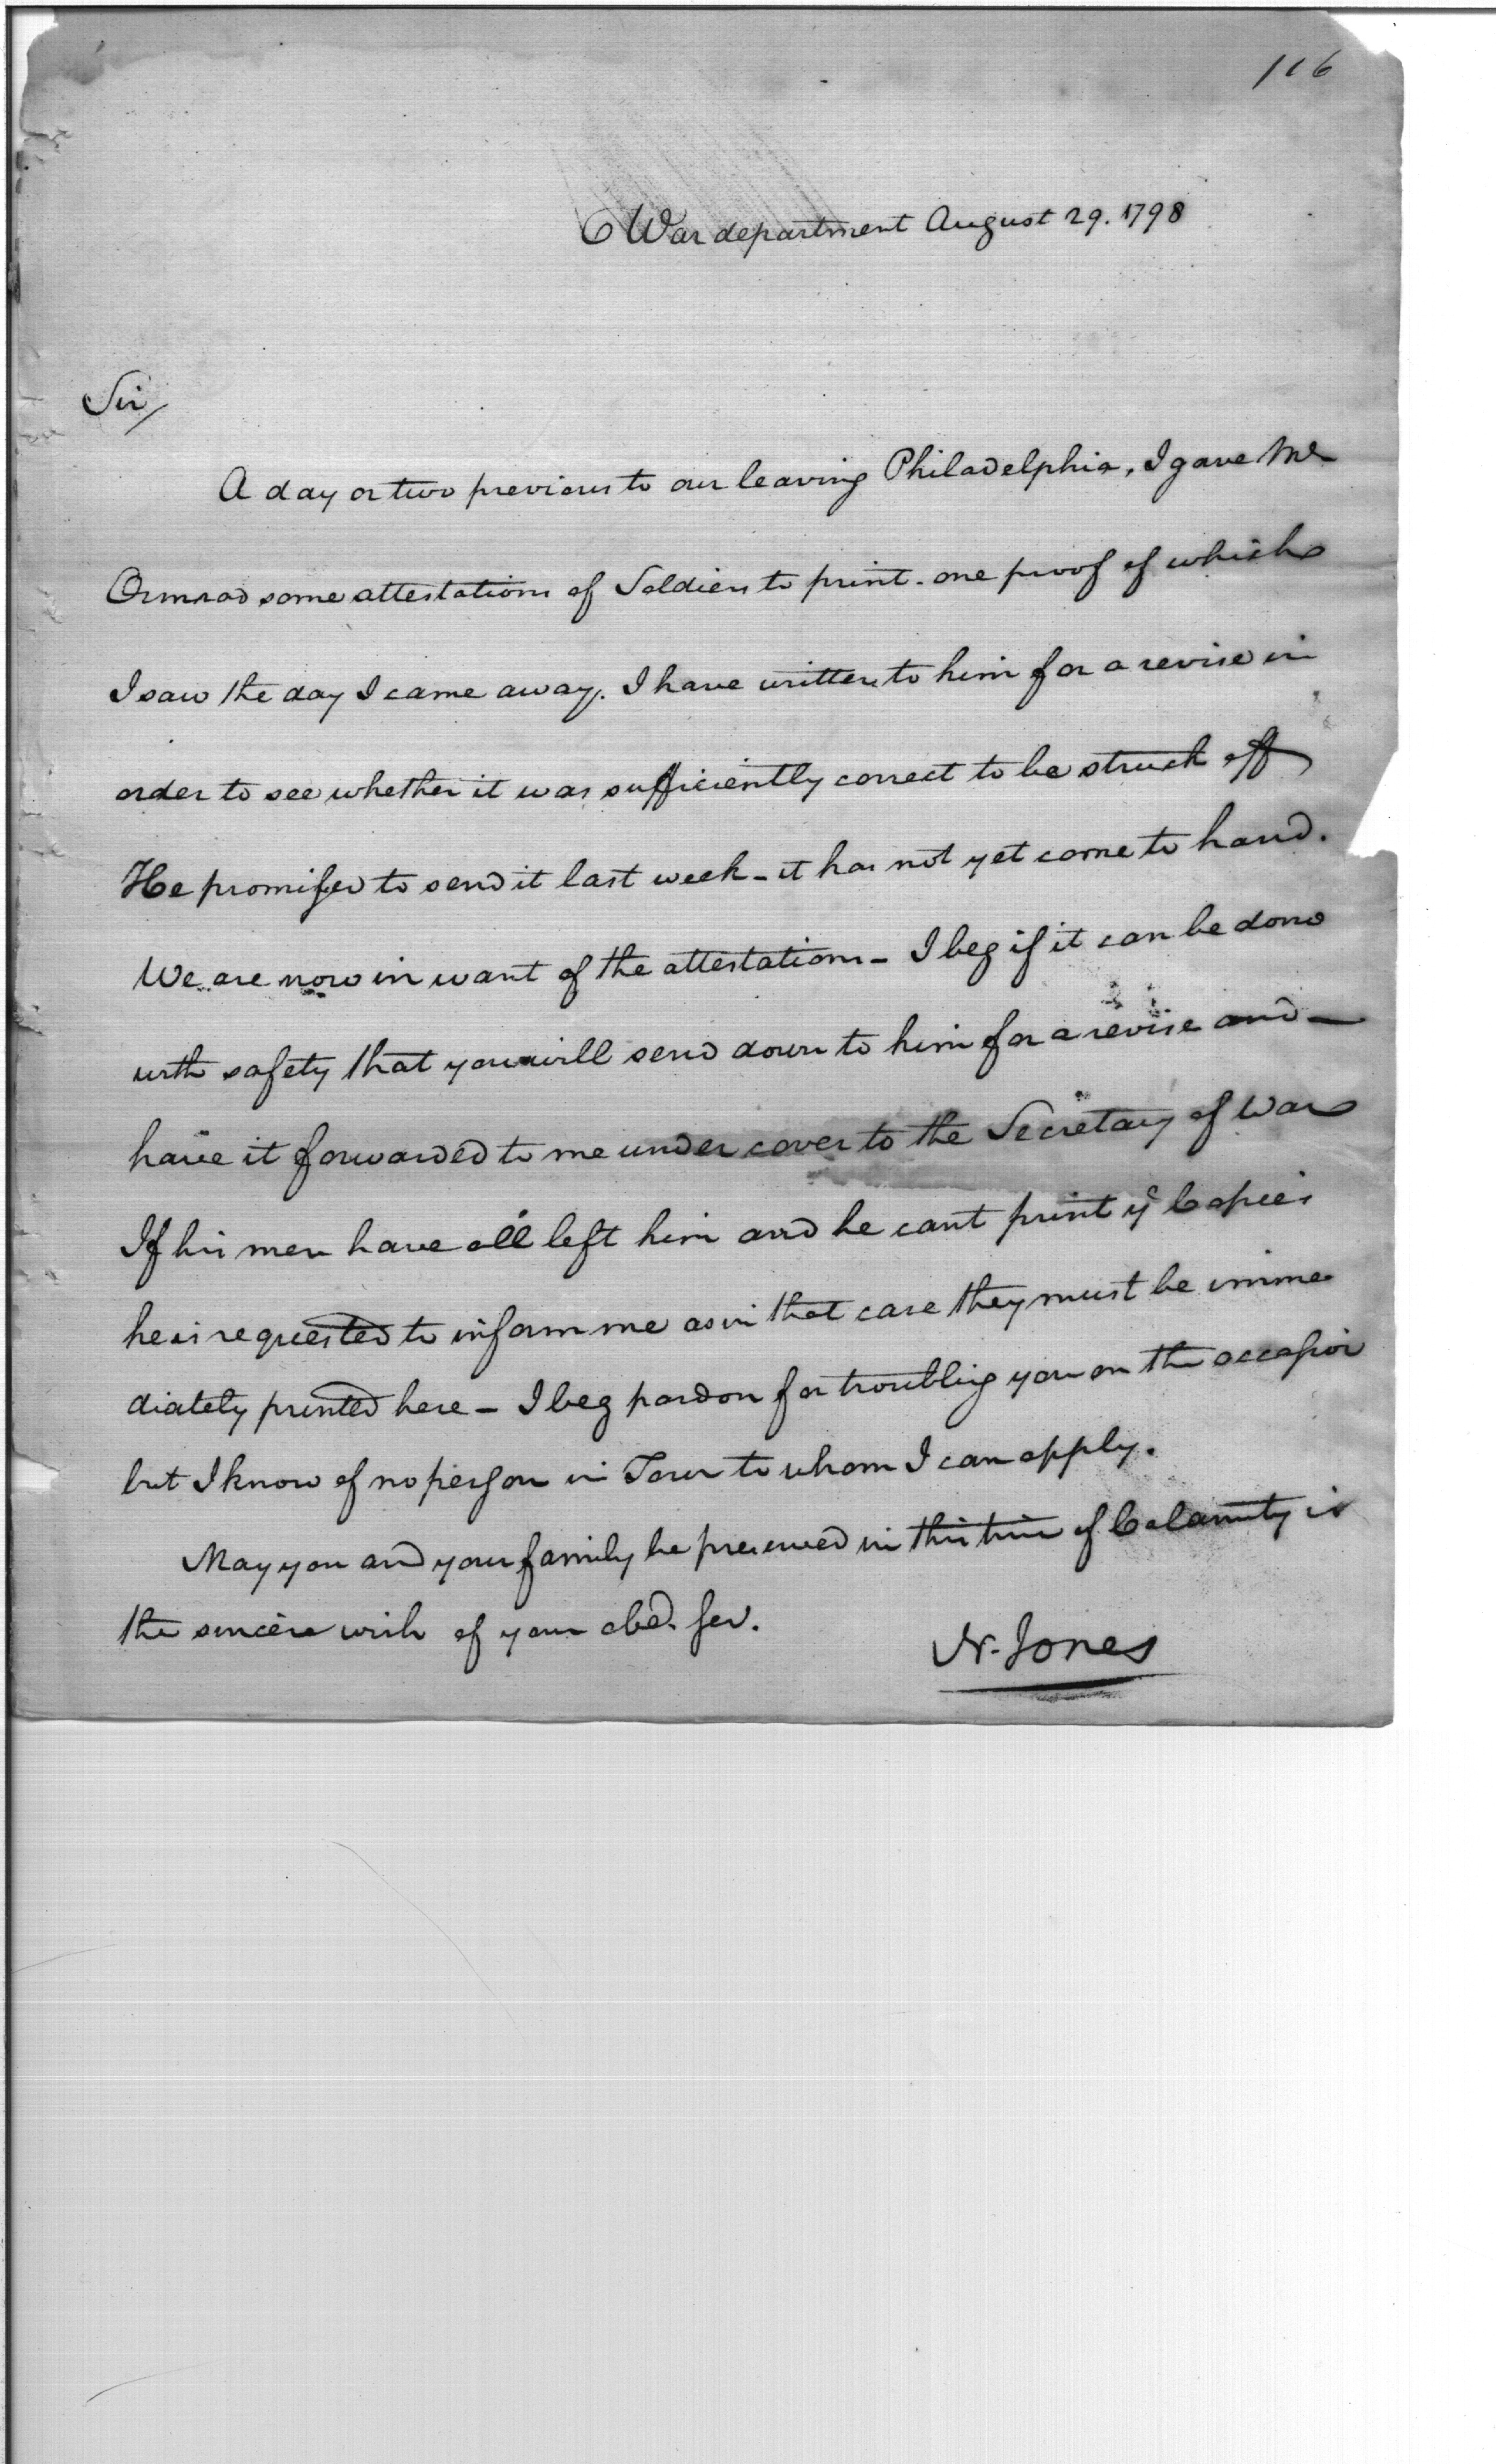 116
War department August 29. 1798
Sir/
A day or two previous to our leaving Philadelphia, I gave Mr
Ormrod some attestations of Soldiers to print - one proof of which
I saw the day I came away. I have written to him for a revise in
order to see whether it was sufficiently correct to be struck off
He promised to send it last week - it has not yet come to hand.
We are now in want of the attestations - I beg if it can be done
with safety that you will send down to him for a revise and —
have it forwarded to me under cover to the Secretary of War
If his men have all left him and he cant print ye Copies
he is requested to inform me as in that case they must be imme
diately printed here - I beg pardon for troubling you on the occasion
but I know of no person in Town to whom I can apply.
May you and your family be preserved in this time of Calamity is
the sincere wish of your obed. ser.
N. Jones